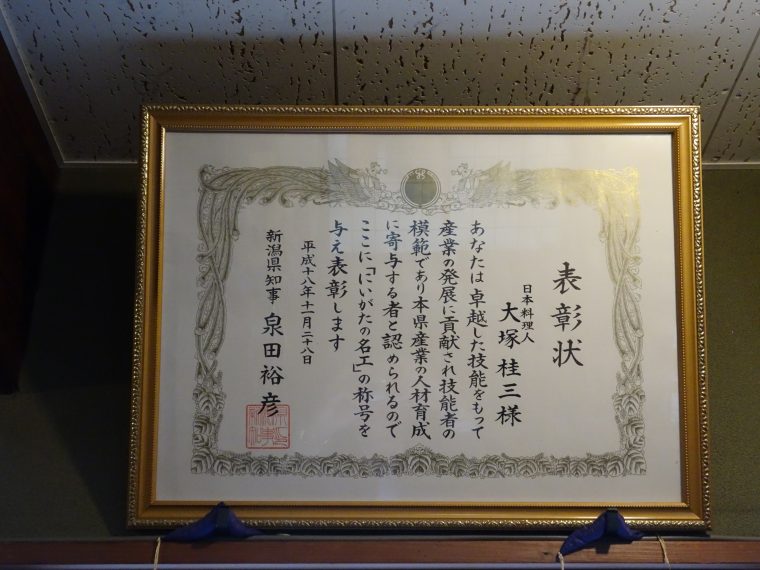 表彰状
日本料理人
大塚桂三様
あなたは卓越した技能をもって
産業の発展に貢献され技能者の
模範であり本県産業の人材育成
に寄与する者と認められるので
ここに「にいがたの名工」の称号を
与え表彰します
平成十八年十一月二十八日
新潟県知事 泉田裕彦